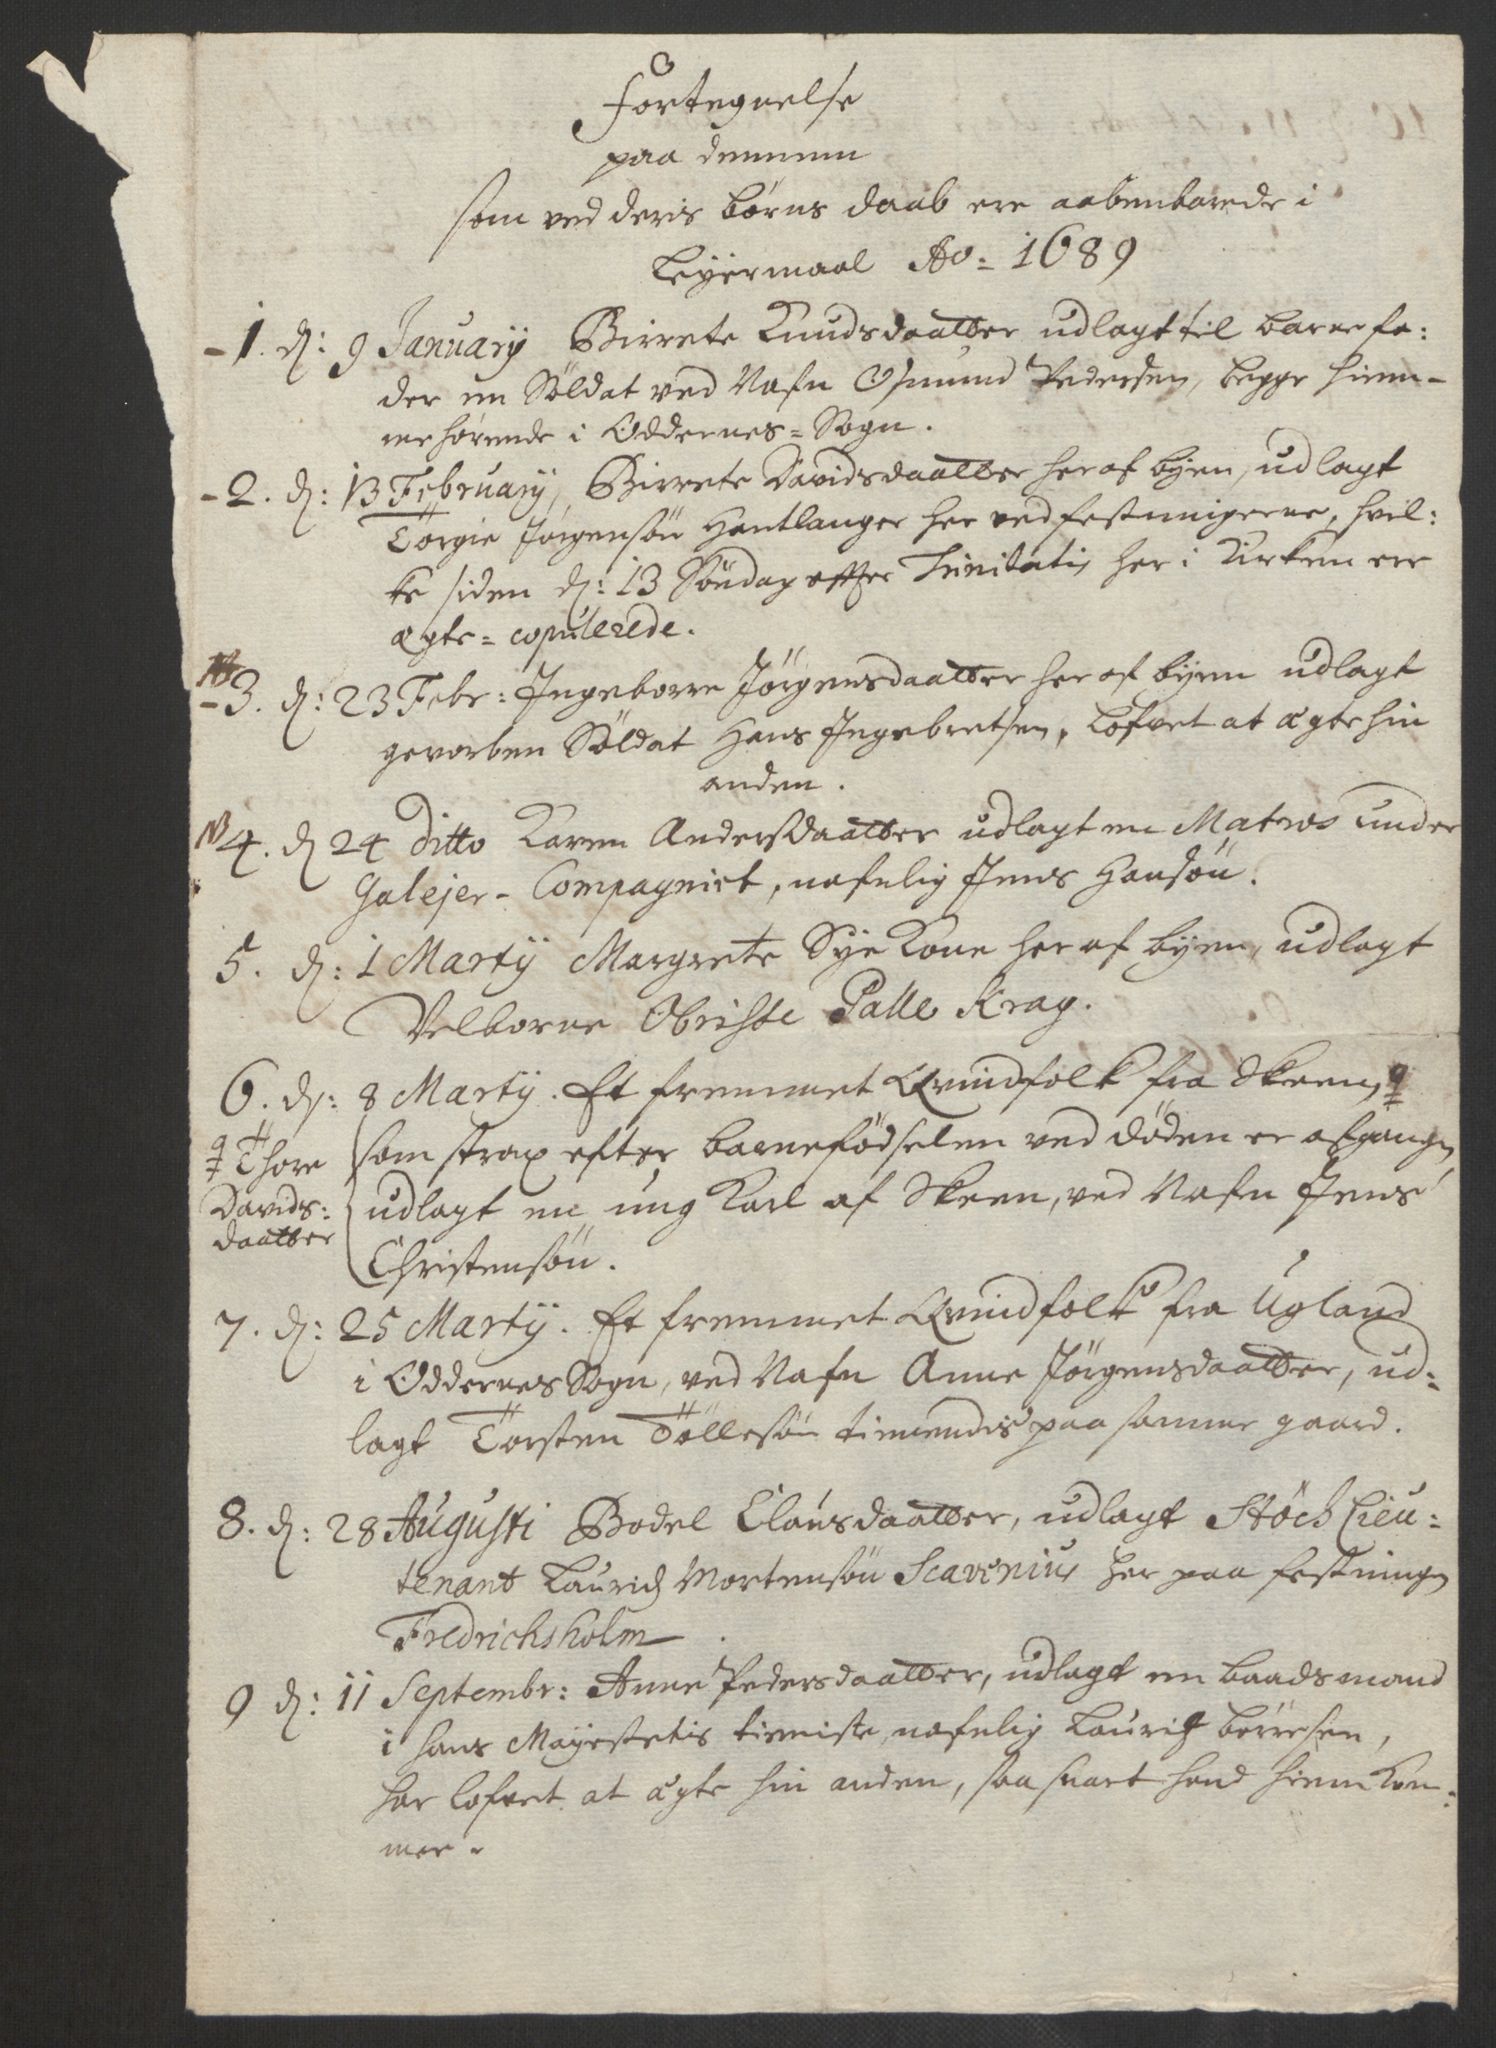 Fortegnelse
paa dennem
som ved deris børns daab ere aabenbarede i
Leyermaal Ao= 1689
-1. d: 9 January Birrete Knudsdaatter udlagt til barnefa:
der en Söldat ved Nafn Osmund Pedersen, begge hiem-
mehørende i Oddernes=Sogn.
-2. d: 13 February, Birrete Davidsdaatter her af byen, udlagt
Törgie Jörgensön Hantlanger her ved festningerne, hvil:
ke siden d: 13 Söndag effter Trinitatis her i Kirken ere
ægte=copulerede.
-3. d: 23 Febr: Ingeborre Jørgensdaatter her af byen udlagt
gevorben Söldat Hans Ingebretsen, lofvet at ægte hin
anden.
NB 4. d 24 ditto Karen Andersdaatter udlagt en Matros under
Galejer-Compagniet, nafnlig Jens Hansön.
5. d: 1 Martij Margrete Sye Kone her af byen, udlagt
Velborne Obriste Palle Krag.
6. d: 8 Martij. Et fremmet Qvindfolk fra Skeen,
Thore
som strax efter barnefödselen ved döden er afgangen,
Davids:
udlagt en ung Karl af Skeen, ved Nafn Jens
daatter
Christensön.
7. d: 25 Martij. Et fremmet Qvindfolk fra Ugland
i Oddernes Sogn, ved Nafn Anne Jörgensdaatter, ud=
lagt Törsten Töllesön tienendis paa samme gaard.
8. d: 28 Augusti Bodel Clausdaatter, udlagt Stöch Lieu:
tenant Laurids Mortensön Scavenius her paa festningen
Fredrichsholm.
9 d: 11 Septembr: Anne Pedersdaatter, udlagt en baadsmand
i hans Mayestetis tieniste, nafnlig Laurids börresen,
har lofvet at ægte hin anden, saa snart hand hiem kom:
mer.